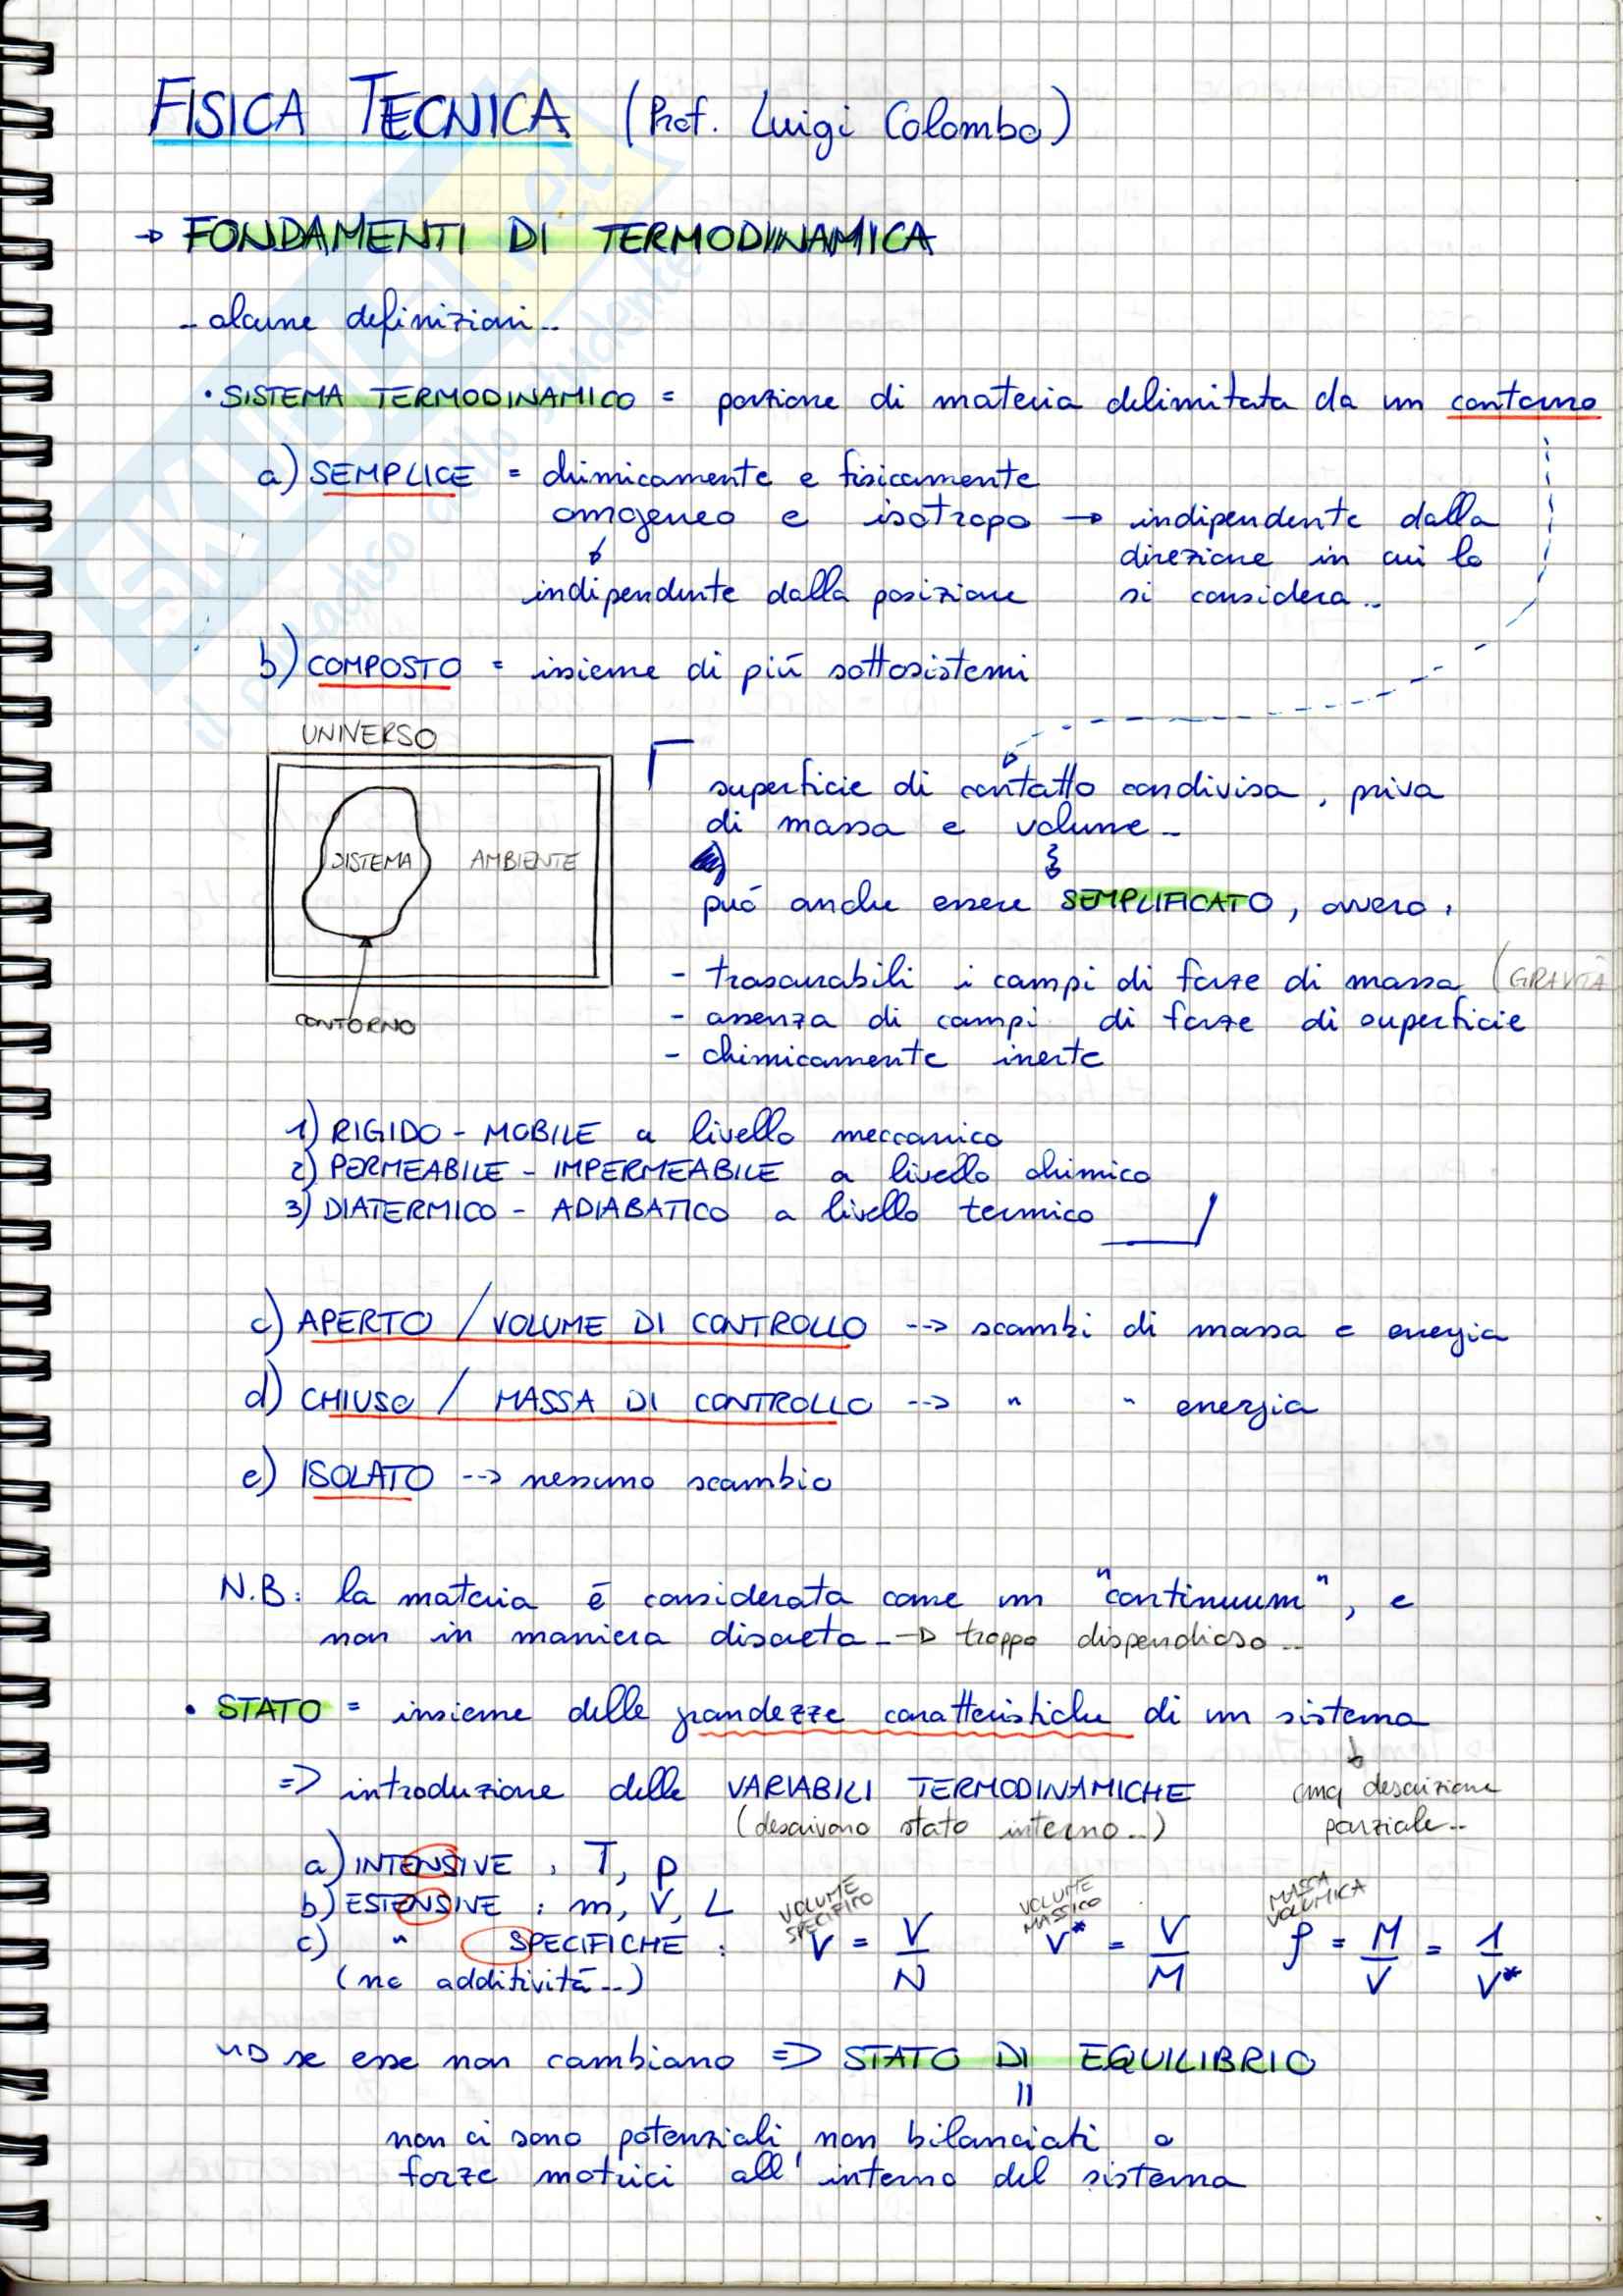 FISICA TECNICA (Prof. Luigi Colombo)
→ FONDAMENTI DI TERMODINAMICA
- alcune definizioni..
• SISTEMA TERMODINAMICO = porzione di materia delimitata da un contorno
a) SEMPLICE = chimicamente e fisicamente
omogeneo e isotropo → indipendente dalla
direzione in cui lo
indipendente dalla posizione si considera..
b) COMPOSTO = insieme di più sottosistemi
UNIVERSO
SISTEMA AMBIENTE
CONTORNO
superficie di contatto condivisa, priva
di massa e volume..
può anche essere SEMPLIFICATO, ovvero:
- trascurabili i campi di forze di massa (GRAVITÀ
- assenza di campi di forze di superficie
- chimicamente inerte
1) RIGIDO - MOBILE a livello meccanico
2) PERMEABILE - IMPERMEABILE a livello chimico
3) DIATERMICO - ADIABATICO a livello termico
c) APERTO / VOLUME DI CONTROLLO --> scambi di massa e energia
d) CHIUSO / MASSA DI CONTROLLO --> " " energia
e) ISOLATO --> nessuno scambio
N.B: la materia è considerata come un "continuum", e
non in maniera discreta.. → troppo dispendioso..
• STATO = insieme delle grandezze caratteristiche di un sistema
=> introduzione delle VARIABILI TERMODINAMICHE
(descrivono stato interno..)
cmq descrizione
parziale..
a) INTENSIVE : T, p
b) ESTENSIVE : m, V, L
c) " SPECIFICHE :
(no additività..)
VOLUME SPECIFICO
v = V/N
VOLUME MASSICO
v* = V/M
MASSA VOLUMICA
ρ = M/V = 1/v*
→ se esse non cambiano => STATO DI EQUILIBRIO
=
non ci sono potenziali non bilanciati o
forze motrici all'interno del sistema
SKUOLA.net
il paradiso dello studente